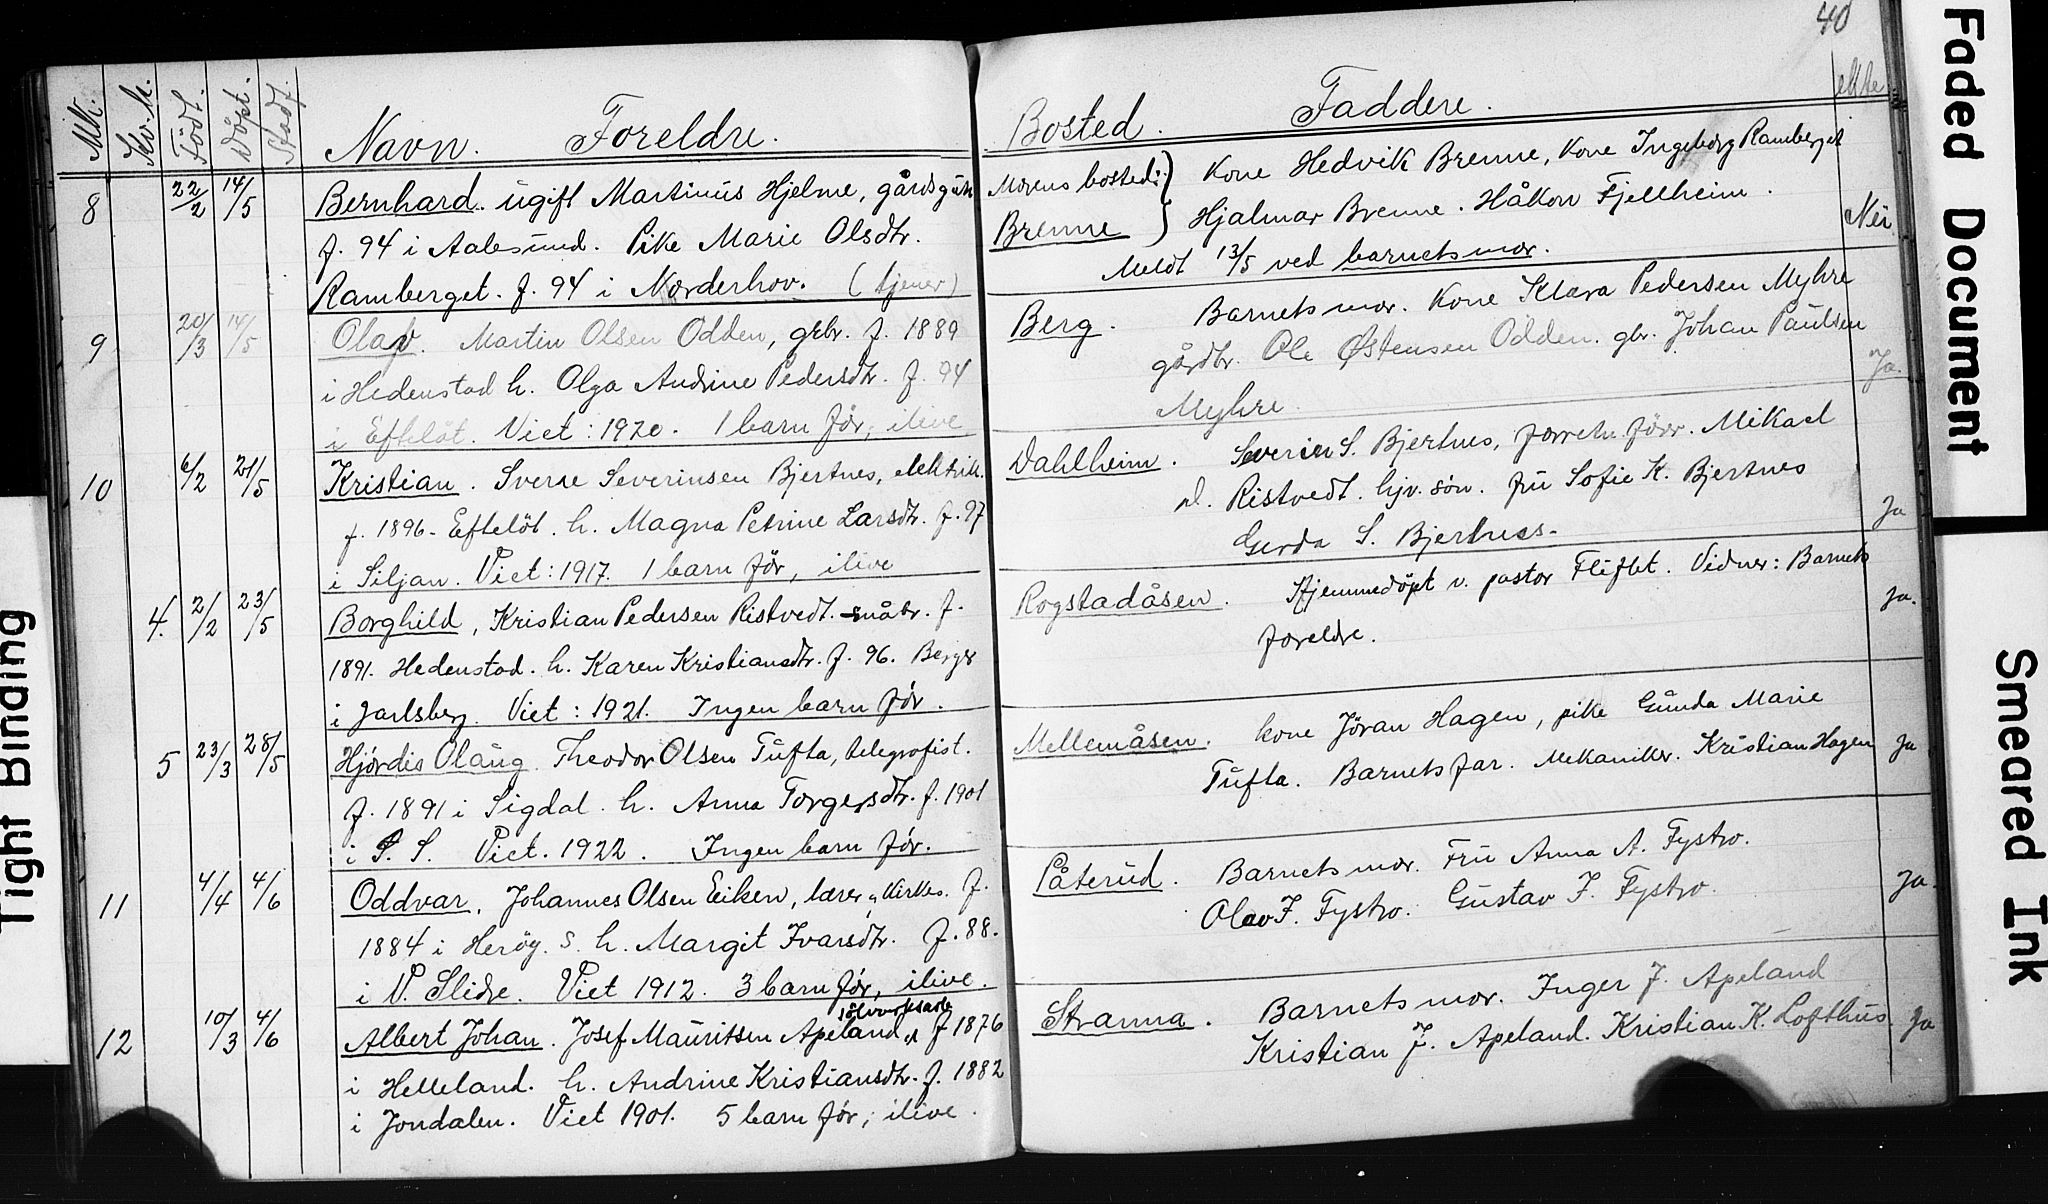 40
Mk. Kv.k. Født. Döpt. Stadf. Navn. Foreldre.
Bosted. Faddere. ekte
8 22/2 14/5 Bernhard. ugift Martinus Hjelme, gårdsgut
f. 94 i Aalesund. Pike Marie Olsdtr.
Ramberget. f. 94 i Norderhov. (tjener)
Morens bosted: Kone Hedvik Brenne, Kone Ingeborg Ramberget
Brenne Hjalmar Brenne. Håkon Fjellheim. Nei
Meldt 13/5 ved barnets mor.
9 20/3 14/5 Olav. Martin Olsen Odden, gbr. f. 1889
i Hedenstad h. Olga Andrine Pedersdtr. f. 94
i Efteløt. Viet: 1920. 1 barn før, ilive
Berg. Barnets mor. Kone Klara Pedersen Myhre
gårdbr. Ole Østensen Odden. gbr. Johan Paulsen
Myhre. Ja.
10 6/2 21/5 Kristian. Sverre Severinsen Bjertnes, elektrik.
f. 1896 - Efteløt. h. Magna Petrine Larsdtr. f. 97
i Siljan. Viet: 1917. 1 barn før, ilive
Dahlheim. Severin S. Bjertnes, forretn. förr. Mikael
Ristvedt. hjv. søn. fru Sofie K. Bjertnes
Gerda S. Bjertness. Ja
4. 2/2 23/5 Borghild, Kristian Pedersen Ristvedt. småbr. f.
1891. Hedenstad. h. Karen Kristiansdtr. f. 96. Berger
i Jarlsberg. Viet: 1921. Ingen barn før.
Rogstadåsen. Hjemmedøpt v. pastor Fliflet. Vidner: Barnets
foreldre. Ja.
5 23/3 28/5 Hjørdis Olaug Theodor Olsen Tufta, telegrafist.
f. 1891 i Sigdal. h. Anna Torgersdtr. f. 1901
i S. S. Viet. 1922. Ingen barn før.
Mellemåsen. kone Jöran Hagen, pike Gunda Marie
Tufta. Barnets far. Mekaniker. Kristian Hagen Ja
11 4/4 4/6 Oddvar, Johannes Olsen Eiken, lærer, kirkes. f.
1884 i Herøy. S. h. Margit Ivarsdtr. f. 88.
i V. Slidre. Viet 1912. 3 barn før, ilive.
Påterud. Barnets mor. Fru Anna A. Fystro.
Olav I. Fystro. Gustav I. Fystro. Ja.
12 10/3 4/6 Albert Johan. Josef Mauritsen Apeland, sölvverksarb f 1876
i Helleland. h. Andrine Kristiansdtr. f. 1882
i Jondalen. Viet 1901. 5 barn før, ilive.
Stranna. Barnets mor. Inger J. Apeland
Kristian J. Apeland. Kristian K. Lofthus. Ja
Tight Binding
Faded Document
Smeared Ink